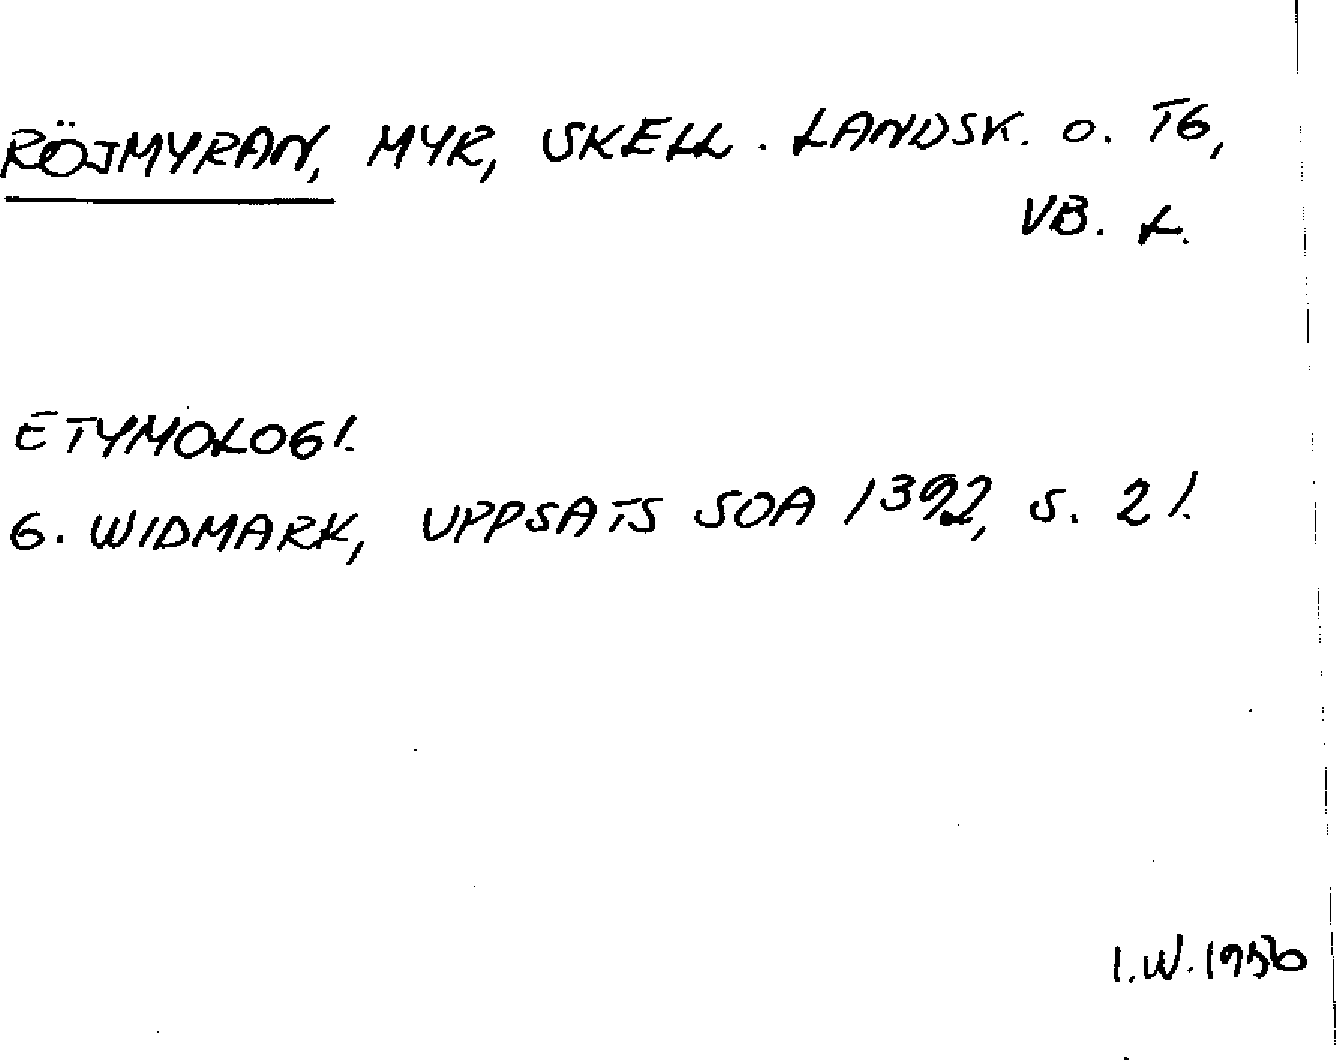 RÖJMYRAN, MYR, SKELL. LANDSK. O. TG,
VB. L.
ETYMOLOGI.
G. WIDMARK, UPPSATS SOA 1392, S. 21.
I.W. 1956